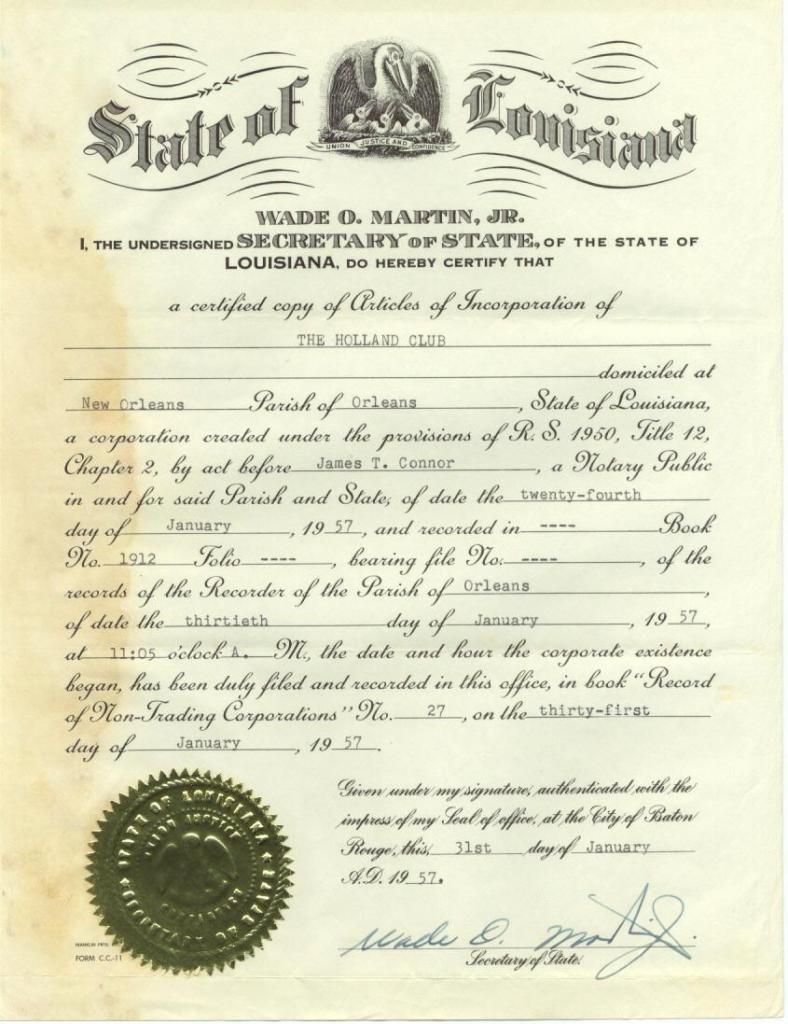 State of Louisiana
UNION JUSTICE AND CONFIDENCE
WADE O. MARTIN, JR.
I, THE UNDERSIGNED SECRETARY OF STATE, OF THE STATE OF
LOUISIANA, DO HEREBY CERTIFY THAT
a certified copy of Articles of Incorporation of
THE HOLLAND CLUB
domiciled at
New Orleans Parish of Orleans, State of Louisiana,
a corporation created under the provisions of R. S. 1950, Title 12,
Chapter 2, by act before James T. Connor, a Notary Public
in and for said Parish and State, of date the twenty-fourth
day of January, 1957, and recorded in ---- Book
No. 1912 Folio ----, bearing file No. ----, of the
records of the Recorder of the Parish of Orleans,
of date the thirtieth day of January, 1957,
at 11:05 o'clock A. M., the date and hour the corporate existence
began, has been duly filed and recorded in this office, in book "Record
of Non-Trading Corporations" No. 27, on the thirty-first
day of January, 1957.
Given under my signature, authenticated with the
impress of my Seal of office, at the City of Baton
Rouge, this, 31st day of January
A.D. 1957.
STATE OF LOUISIANA
UNION JUSTICE
CONFIDENCE
SECRETARY OF STATE
Wade O. Martin Jr.
Secretary of State.
FRANKLIN PRTG.
FORM C.C.-11